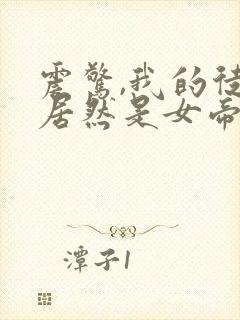 震惊,我的徒
居然是女帝
潭子1